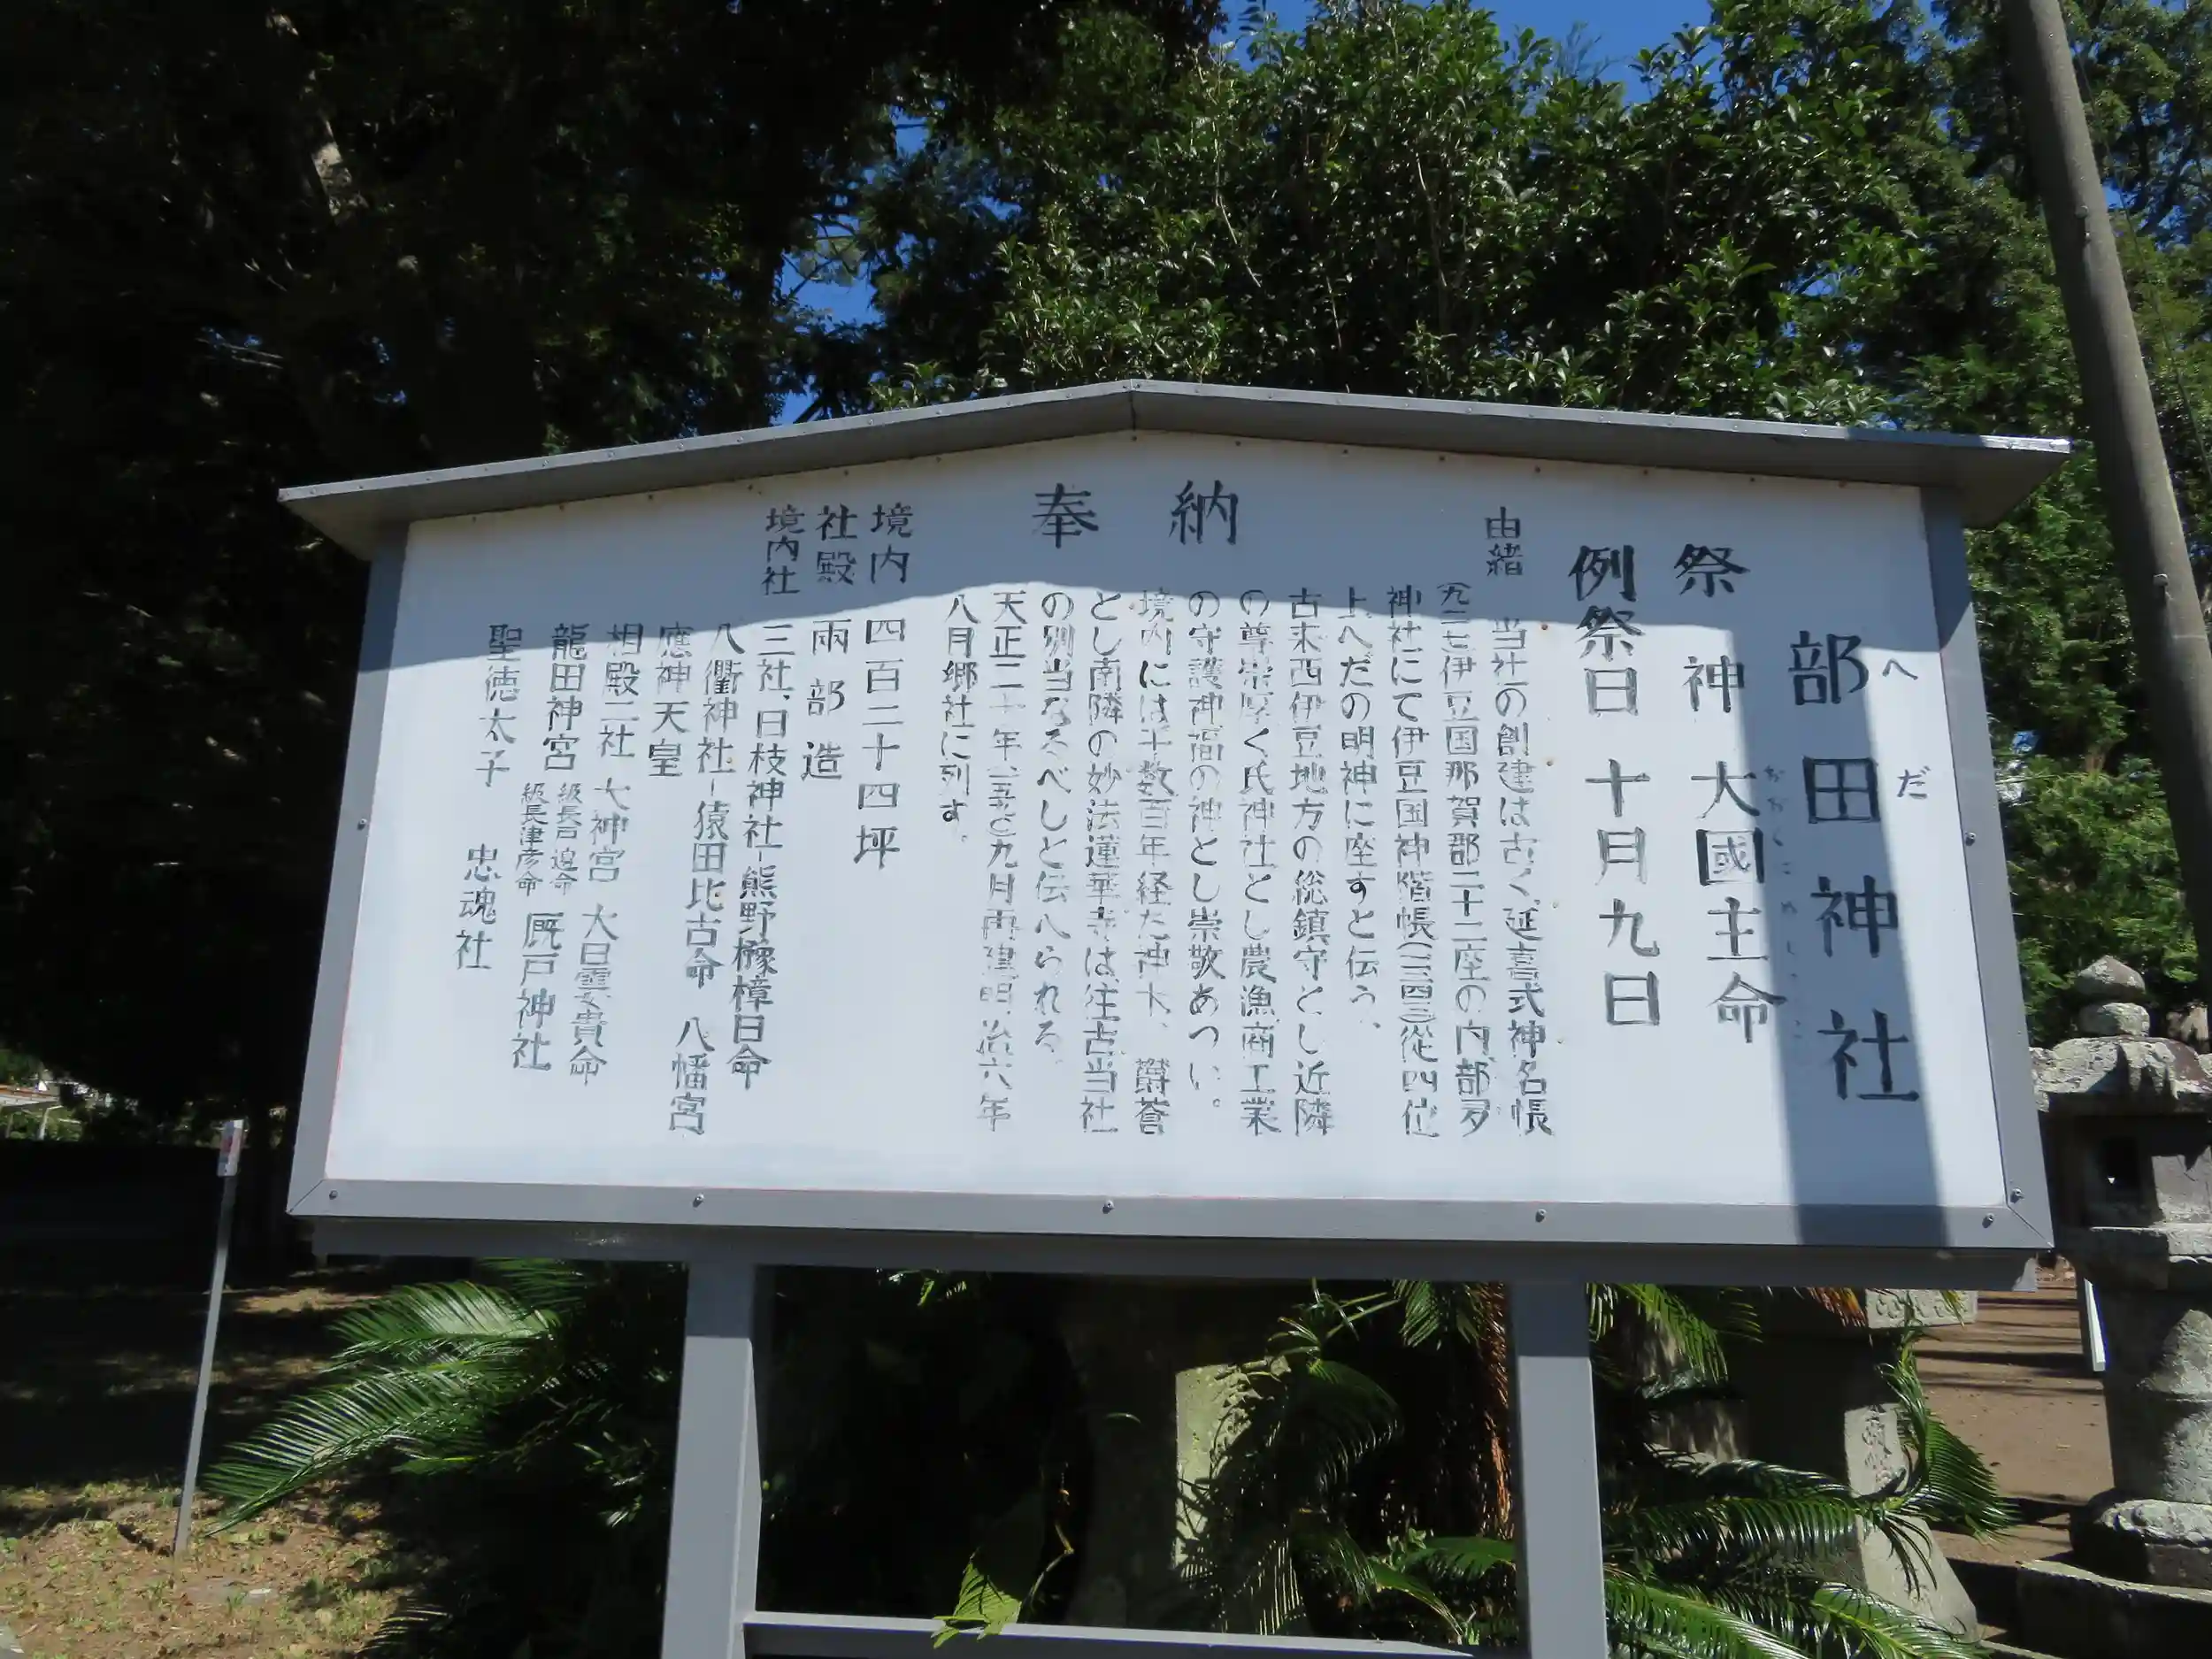 奉納
部田神社
へだ
祭神 大國主命
例祭日 十月九日
由緒
当社の創建は古く、延喜式神名帳
(九二七)伊豆国那賀郡二十二座の内、部多
神社にて伊豆国神階帳(三四三)従四位
上へだの明神に座すと伝う、
古来西伊豆地方の総鎮守とし近隣
の尊崇厚く氏神社とし農漁商工業
の守護神福の神とし崇敬あつい。
境内には千数百年経た神木、欝蒼
とし南隣の妙法蓮華寺は往古当社
の別当なるべしと伝へられる。
天正二十年、九月再建明治六年
八月郷社に列す。
境内 四百二十四坪
社殿 両部造
境内社 三社、日枝神社-熊野櫲樟日命
八衢神社-猿田比古命 八幡宮
應神天皇
相殿二社 大神宮 大日孁貴命
龍田神宮 級長戸邉命 級長津彦命 厩戸神社
聖徳太子 忠魂社